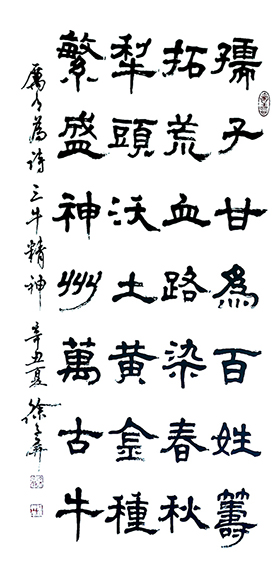 孺子甘為百姓籌
拓荒血路染春秋
犁頭沃土黃金種
繁盛神州萬古牛
厲有為詩 三牛精神 辛丑夏 徐